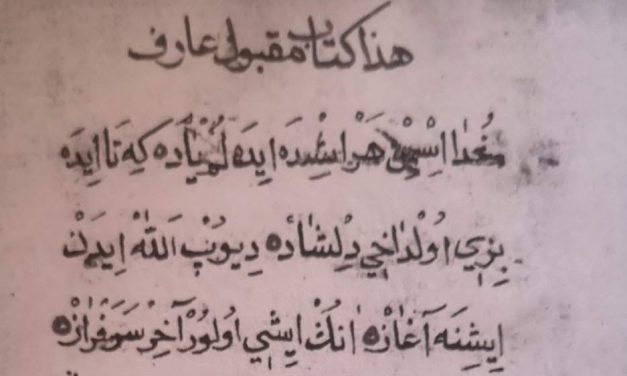 هذا كتاب مقبول عارف
خُدَا اِسْمِنْ هَرْ اِشْدَه اِيدَه لُمْ يَادَه كَه تَا اِيدَه
بِزِي اُولْدَاخِي دِلْشَادَه دِيوُبْ اَللّٰهْ اِيدَنْ
اِيشِنَه آغَازَه اَنُكْ اِيشِي اُولُورْ آخِرْ سَرْفَرَازَه